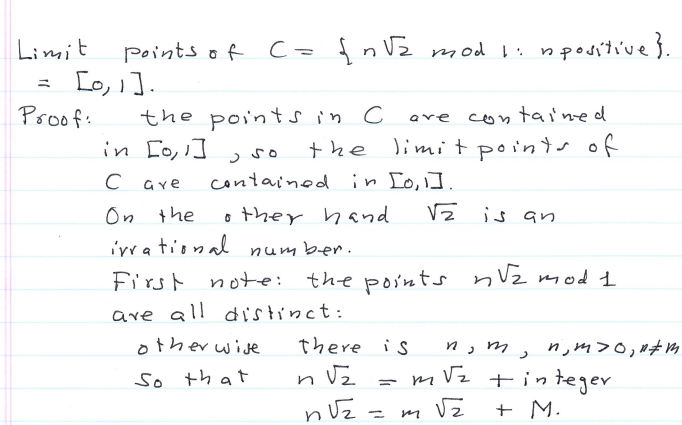 Limit points of C = { n√2 mod 1: n positive}.
= [0,1].
Proof: the points in C are contained
in [0,1], so the limit points of
C are contained in [0,1].
On the other hand √2 is an
irrational number.
First note: the points n√2 mod 1
are all distinct:
otherwise there is n, m, n,m>0, n≠m
so that n√2 = m√2 + integer
n√2 = m√2 + M.